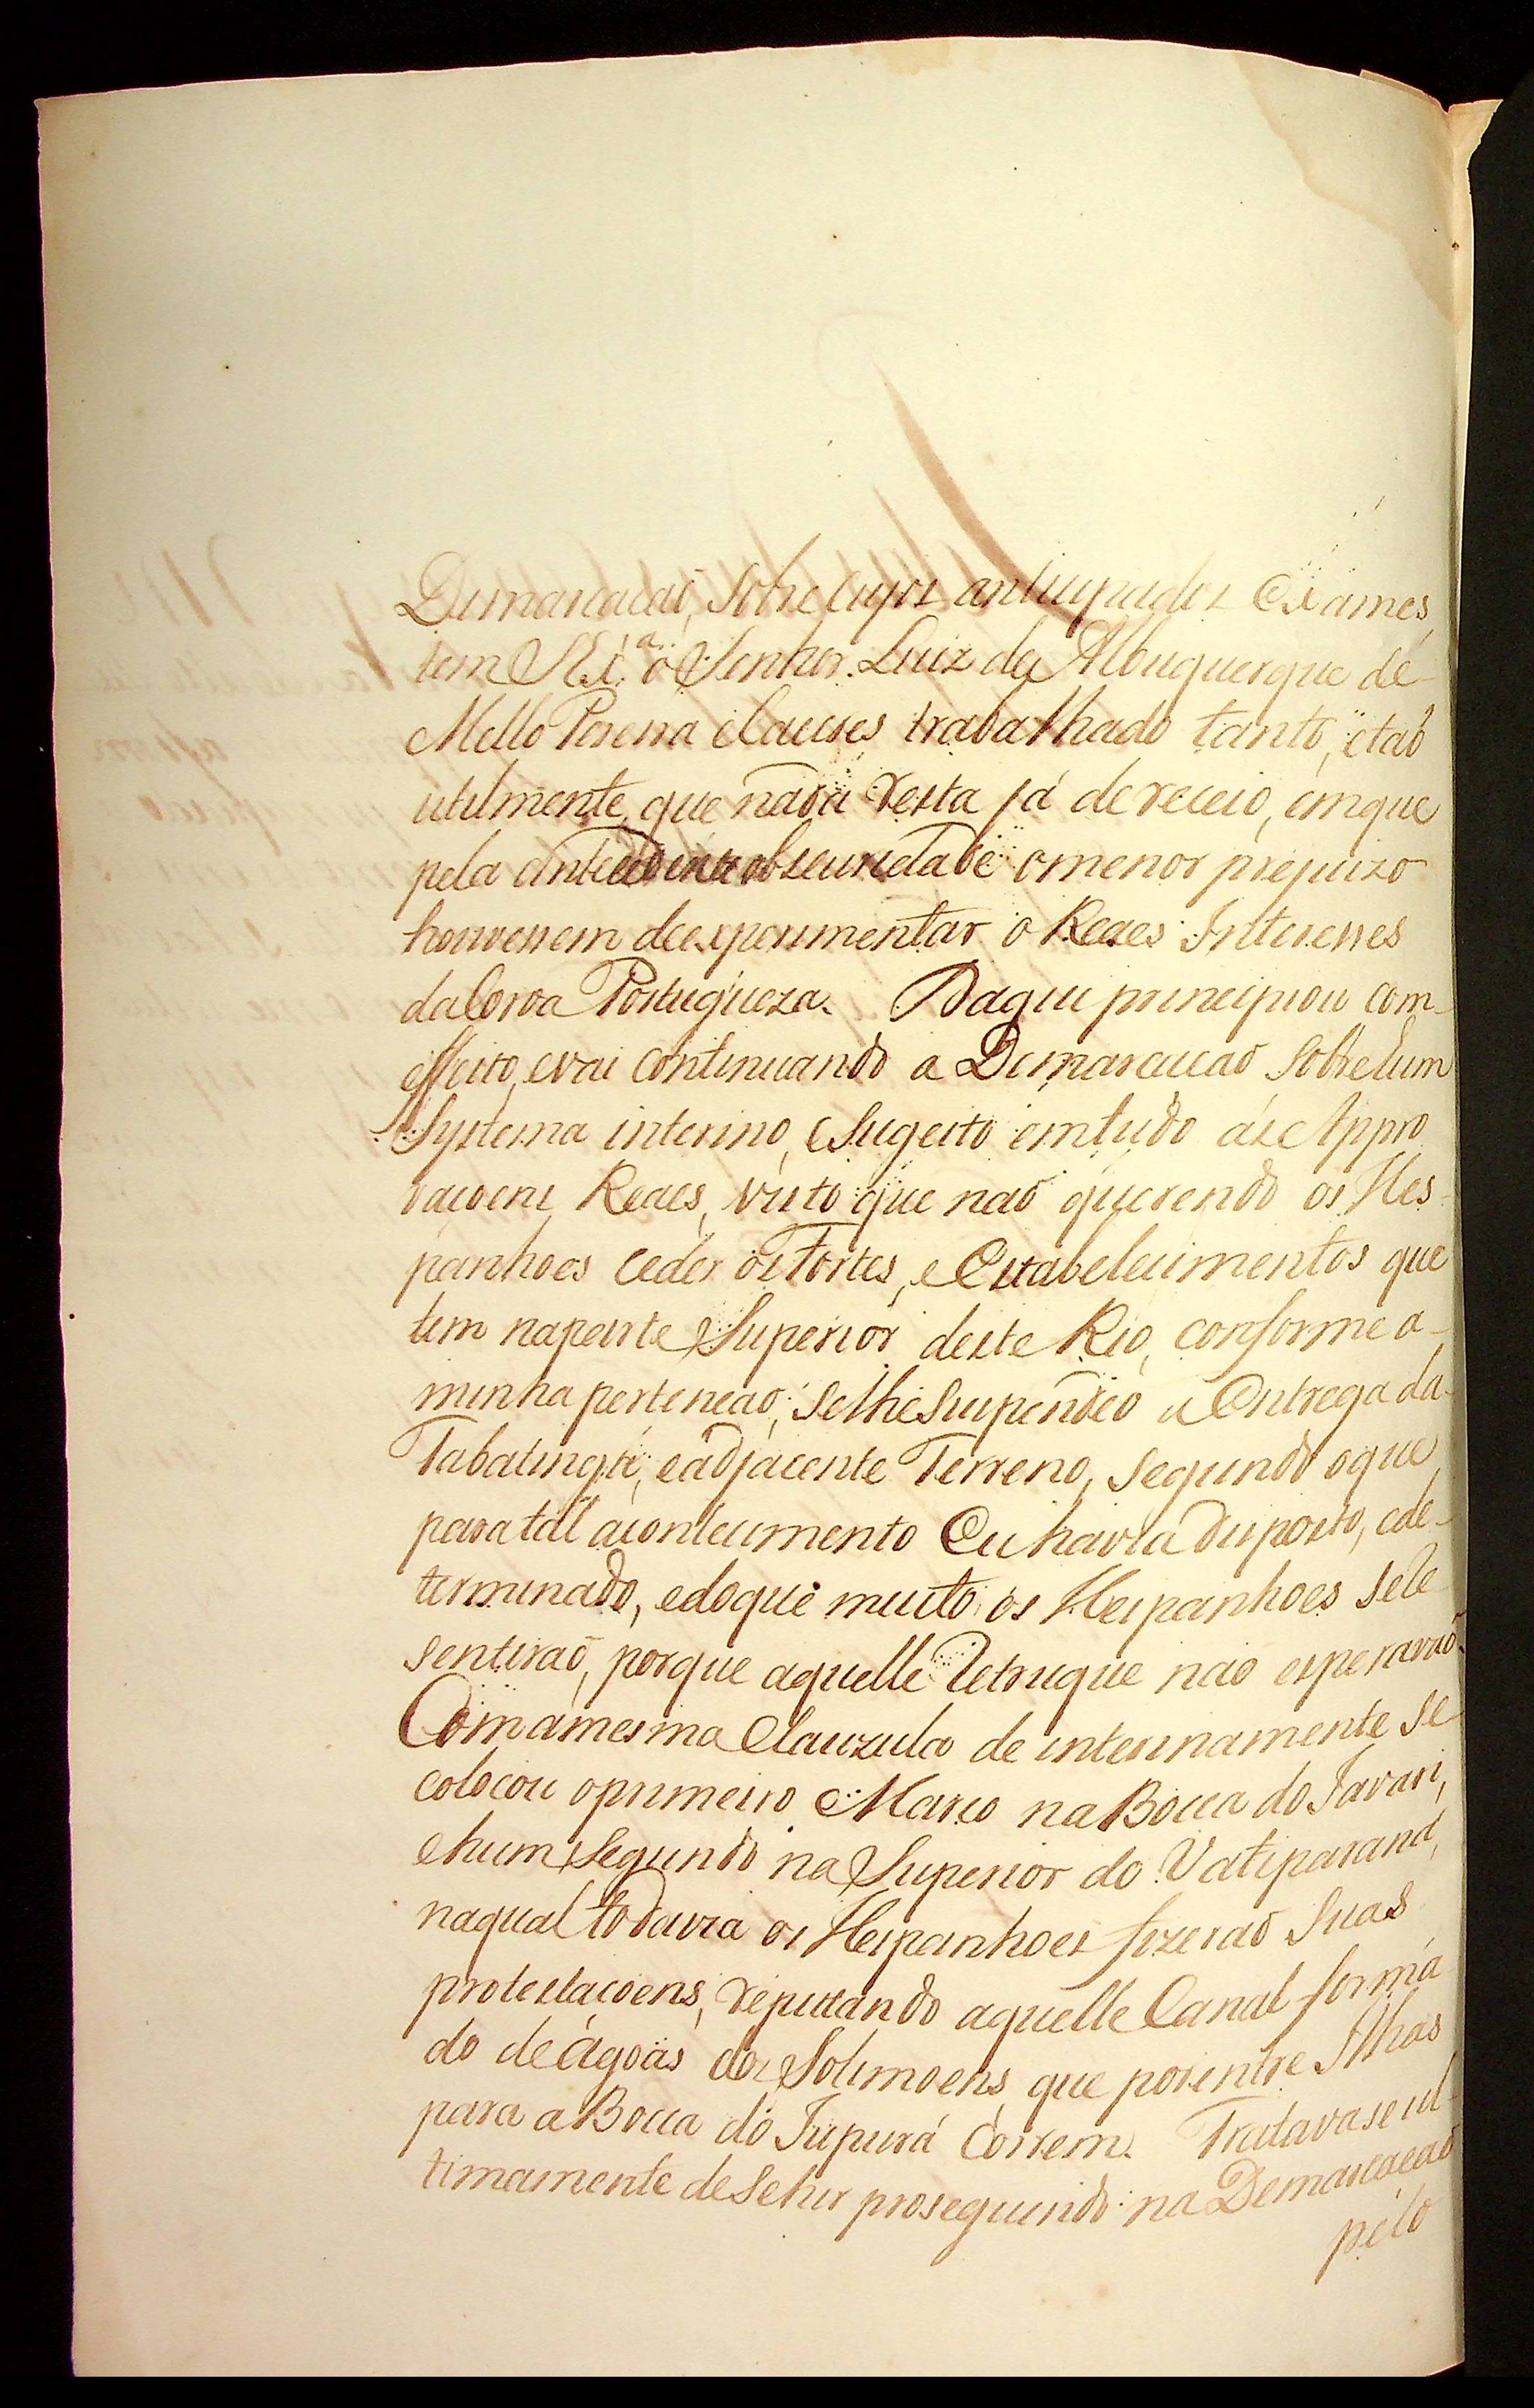 Demarcacaõ, Sobre cujos anticipados Exames,
tem S. Ex.ª o Senhor Luiz de Albuquerque de
Mello Pereira e Caceres trabalhado tanto, e taõ
utilmente, que nada resta já de receio, em que
pela antecedente obscuridade o menor prejuizo
houvessem de experimentar o Reaes Interesses
da Coroa Portugueza. Daqui principiou com
effeito, e vai continuando a Demarcacaõ sobre hum
Systema interino, e Sugeito em tudo ás Appro
vacoens Reaes, visto que naõ querendo os Hes
panhoes ceder os Fortes, e Estabelecimentos que
tem na parte Superior deste Rio, conforme a
minha pertencaõ, se lhe Suspendeo a Entrega da
Tabatinga, e adjacente Terreno, segundo o que
para tal acontecimento Eu havia disposto, e de-
terminado, e do que muito os Hespanhoes se re
sentiraõ, porque aquelle Retruque naõ esperavaõ.
Com a mesma Clauzula de interinamente se
colocou o primeiro Marco na Bocca do Javari,
e hum Segundo na Superior do Vatiparaná,
na qual todavia os Hespanhoes fizeraõ Suas
protestacoens, reputando aquelle Canal forma
do de agoas dos Solimoens, que por entre Ilhas
para a Bocca do Jupurá Correm. Tratavase ul-
timamente de se hir proseguindo na Demarcacaõ
pelo